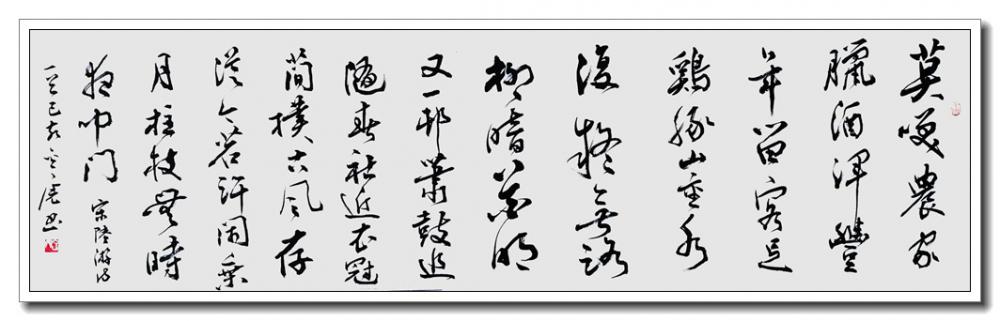 莫笑農家
臘酒渾豐
年留客足
鷄豚山重水
復疑無路
柳暗花明
又一邨簫鼓追
隨春社近衣冠
簡樸古風存
從今若許閑乘
月拄杖無時
夜叩門
宋陸游詩
己亥